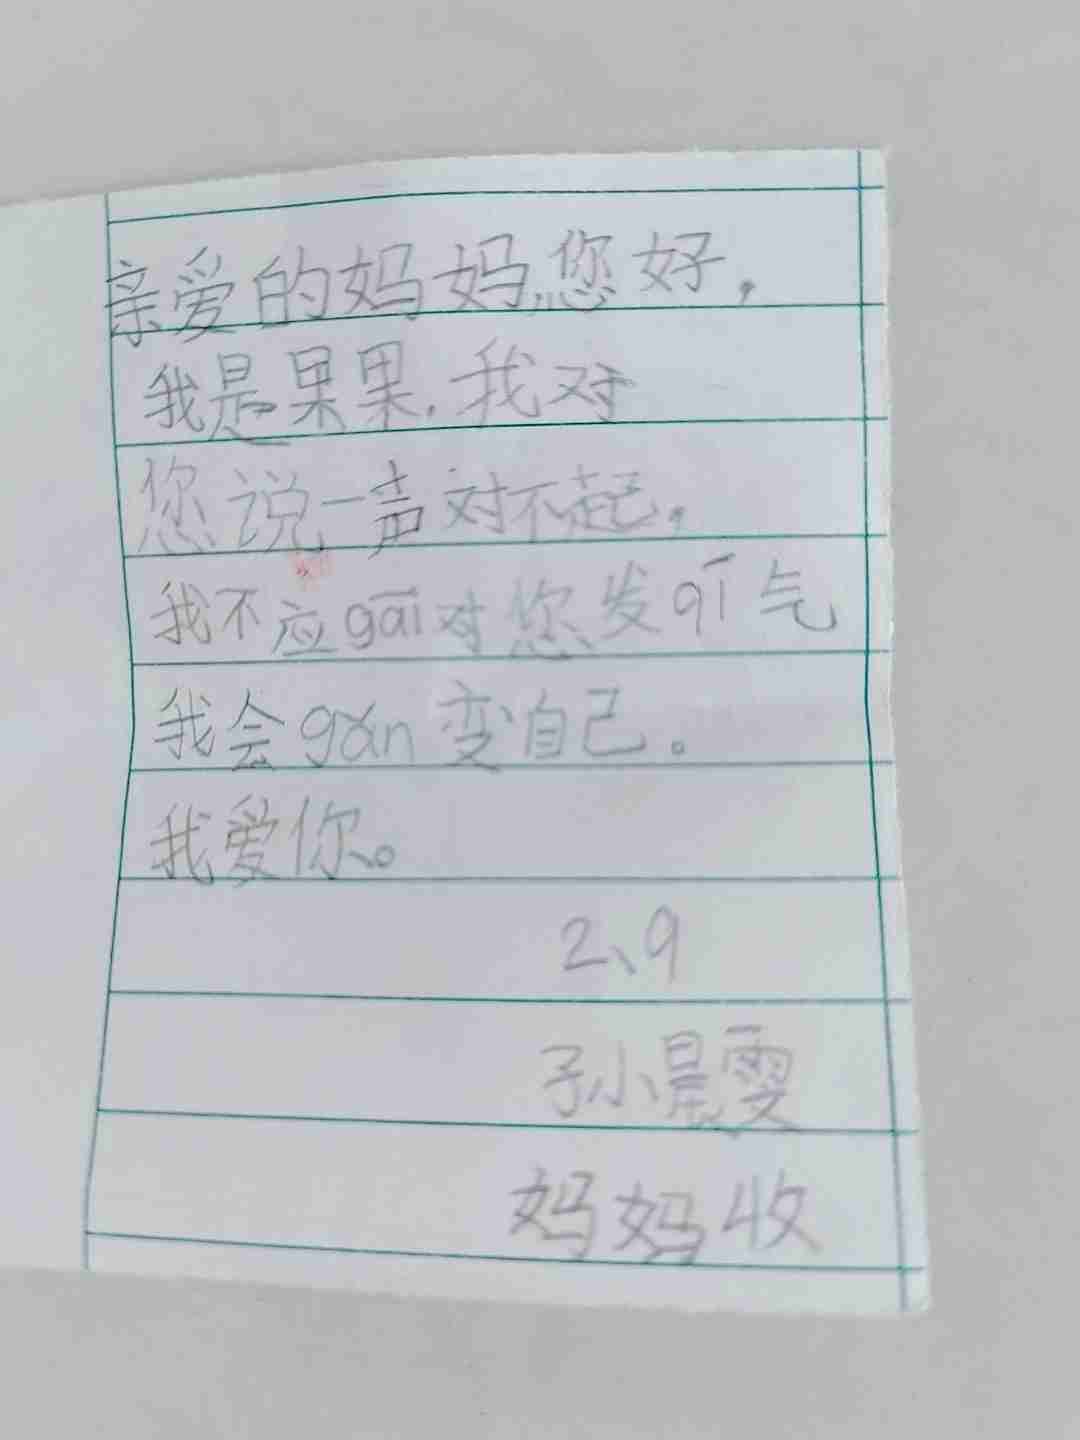 亲爱的妈妈,您好,
我是果果,我对
您说一声对不起,
我不应gāi对您发qī气
我会gǎn变自己。
我爱你。
2、9
孙小晨雯
妈妈收